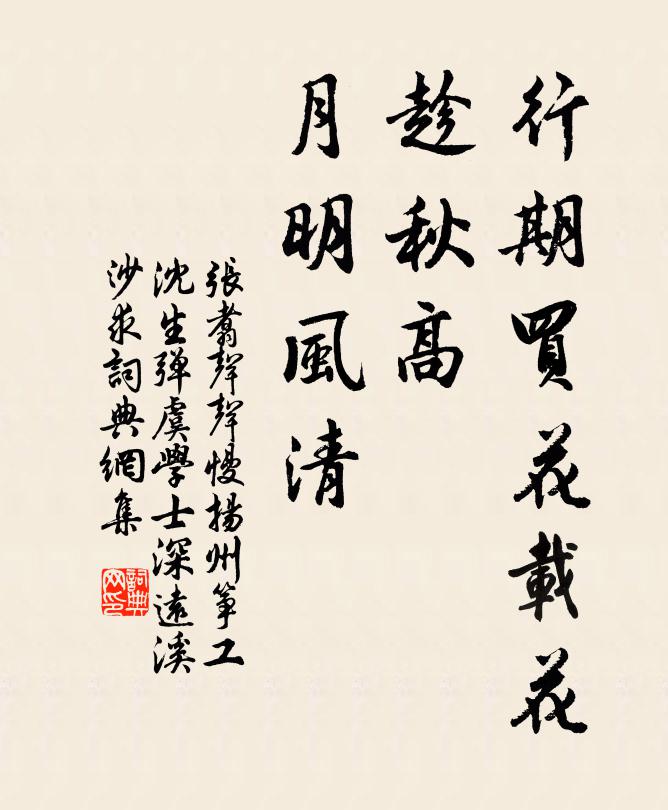 行期買花載花
趁秋高
月明風清
張翥聲聲慢揚州箏工
沈生弹虞學士深遠溪
沙求詞典網集
詞典
网印